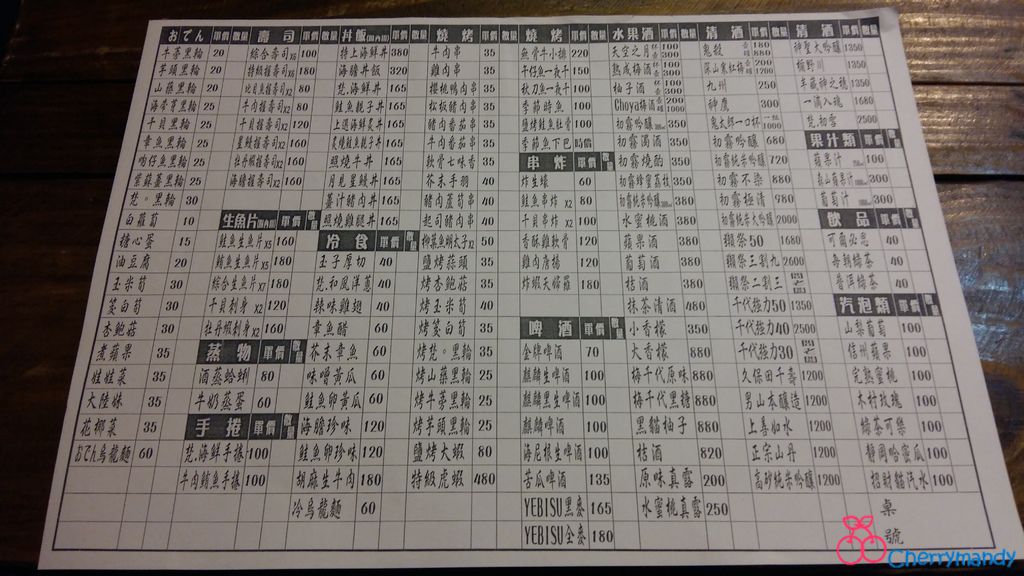 おでん 單價 數量
牛蒡黑輪 20
芋頭黑輪 20
山藥黑輪 20
海帶芽黑輪 25
干貝黑輪 25
章魚黑輪 25
吻仔魚黑輪 25
紫蘇蒸黑輪 25
梵。黑輪 30
白蘿蔔 10
擔心蛋 15
油豆腐 20
玉米筍 30
茭白筍 30
杏鮑菇 30
煮蘋果 35
娃娃菜 35
大陸妹 35
花椰菜 35
おでん烏龍麵 60
壽司 單價 數量
綜合壽司X6 100
特級握壽司X6 180
X2 80
牛肉握壽司X2 80
干貝握壽司X2 120
星鰻握壽司X2 160
牡丹蝦握壽司X2 160
海膽握壽司X2 160
生魚片 單價 數量
鮭魚生魚片X5 160
鮪魚生魚片X5 180
綜合生魚片X7 180
干貝刺身X2 120
牡丹蝦刺身X2 160
蒸物 單價 數量
酒蒸蛤蜊 80
牛奶蒸蛋 60
手捲 單價 數量
梵海鮮手捲 100
牛肉鮪魚手捲 100
丼飯 單價 數量
特上海鮮丼 380
海膽丼飯 320
梵.海鮮丼 165
鮭魚親子丼 165
上選海鮮炙丼 165
炙燒鮭魚親子丼 165
照燒牛丼 165
月見星鰻丼 165
薑汁豬肉丼 165
照燒雞腿丼 165
冷食 單價 數量
玉子厚切 40
梵和風洋蔥 40
辣味雞翅 40
章魚醋 60
芥末章魚 60
味噌黃瓜 60
鮭魚卵黃瓜 60
海膽珍味 120
鮭魚卵珍味 120
胡麻生牛肉 180
冷烏龍麵 60
燒烤 單價 數量
牛肉串 35
雞肉串 35
櫻桃鴨肉串 35
松板豬肉串 35
豬肉番茄串 35
牛肉番茄串 35
軟骨七味香 35
芥末手羽 40
豬肉蘆筍串 40
起司豬肉串 40
柳葉魚明太子X2 50
鹽烤蒜頭 35
烤杏鮑菇 35
烤玉米筍 40
烤茭白筍 35
烤梵。黑輪 35
烤山藥黑輪 25
烤牛蒡黑輪 25
烤芋頭黑輪 25
鹽烤大蝦 80
特級虎蝦 480
燒烤 單價 數量
魚骨牛小排 220
干仔魚一夜干 150
秋刀魚一夜干 100
季節時魚 100
鹽烤鮭魚肚骨 100
季節魚下巴 時價
串炸 單價 數量
炸生蠔 60
鮭魚串炸X2 80
干貝串炸X2 100
香酥雞軟骨 120
雞肉唐揚 120
炸蝦天婦羅 180
啤酒 單價 數量
金牌啤酒 70
麒麟生啤酒 100
麒麟生啤酒 100
麒麟黑生啤酒 100
海尼根生啤酒 100
苦瓜啤酒 135
YEBISU黑麥 165
YEBISU全麥 180
水果酒 單價 數量
天空之月 100 300
熟成梅酒 100
柚子酒 100
Choya梅酒 200 1000
初霧濁酒 350
初霧燒酌 350
初霧蜂蜜荔枝 350
初霧桂花釀 380
水蜜桃酒 380
蘋果酒 380
葡萄酒 380
桔酒 380
抹茶清酒 480
小香檬 350
大香檬 880
梅千代原味 880
梅千代黑糖 880
黑貓柚子 880
桔酒 820
原味真露 200
水蜜桃真露 250
清酒 單價 數量
鬼殺 180 880
深山紫紅梅 200 1200
九州 250
神鷹 300
鬼太郎一口杯 1000
初霧吟釀 680
初霧純米吟釀 720
初霧不染 880
初霧極清 980
初霧純米大吟釀 2000
獺祭50 1680
獺祭三割九 2600
獺祭二割三
千代極力50 1350
千代極力40 2500
千代極力30
久保田千壽 1200
男山木釀造 1200
上善如水 1200
正宗山丹 1200
高砂純米吟釀 1200
清酒 單價 數量
神聖大吟釀 1350
楯野川 1350
半藏神之穗 1350
一滴入魂 1680
梵初雪 2500
果汁類 單價
蘋果汁 100
青山蘋果汁 300
葡萄汁 300
飲品 單價 數量
可爾必思 40
每朝綠茶 40
普洱綠茶 40
汽泡類 單價 數量
山梨葡萄 100
信州蘋果 100
完熟蜜桃 100
木村玫瑰 100
綠茶可樂 100
靜岡哈蜜瓜 100
招財貓汽水 100
桌
號
Cherrymandy